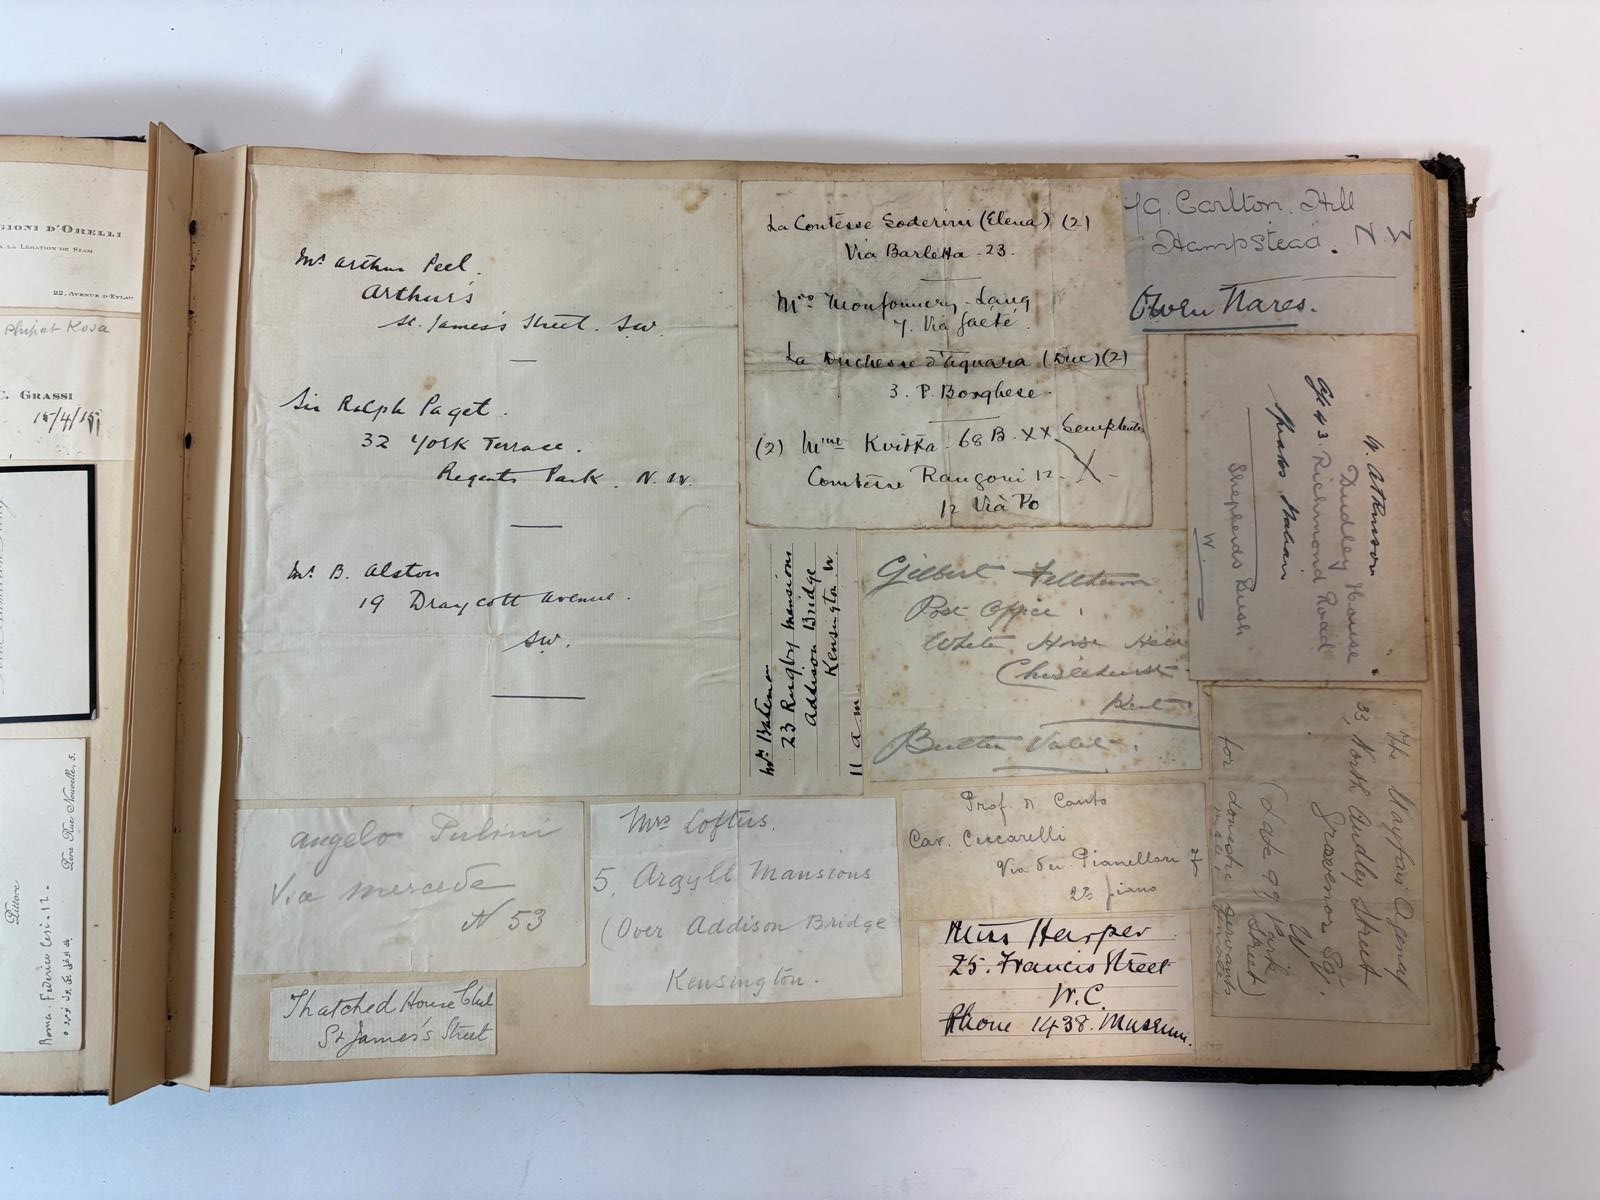 GIONI D'ORELLI
A LA LÉGATION DE SIAM
22, AVENUE D'EYLAU
Phipat Kosa
C. GRASSI
15/4/15
Dere Rue Nouvelle, 5.
Pittore
Roma. Federico Cesi - 12 -
Mr. Arthur Peel.
Arthur's
St. James's Street. S.W.
Sir Ralph Paget.
32 York Terrace.
Regents Park. N.W.
Mr. B. Alston
19 Draycott Avenue.
S.W.
La Contesse Soderini (Elena) (2)
Via Barletta - 23.
7. Via Gaeté.
La Duchesse d'Aquara (Duc) (2)
3. P. Borghese.
(2) Mme Kvitka - 68 B. XX Sempbre
Comtesse Rangoni 12 - X -
12 Via Po
19. Carlton Hill
Hampstead. N.W.
Owen Nares.
W. Atkinson
Dudley House
43 Richmond Road
Speaks Italian
Shepherds Bush
W.
Mrs Bateman
23 Rugby Mansions
Addison Bridge
Kensington W
11 a m
Gilbert Feltham
Post Office,
White Horse Hill
Chislehurst
Kent
Butler Valet.
The Mayfair Agency
33, North Audley Street
Grosvenor Sq.
W.
(Late 99 Park
Street)
for domestic servants
males, females
Angelo
Via Mercede
N 53
Mrs Loftus.
5, Argyll Mansions
(Over Addison Bridge
Kensington.
Prof. di Canto
Cav. Ceccarelli
Via dei Pianellari
2o piano
Thatched House Club
St James's Street
Miss Harper
25. Francis Street
W.C.
Phone 1438. Museum.